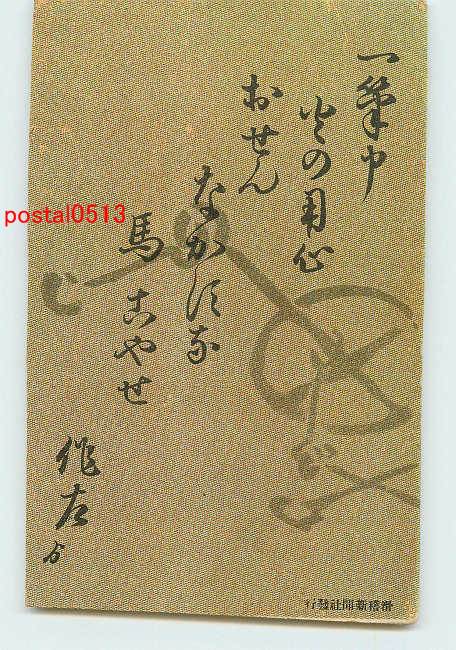 一筆申
火の用心
おせん
なかすな
馬こやせ
作左
ゟ
postal0513
滑稽新聞社發行